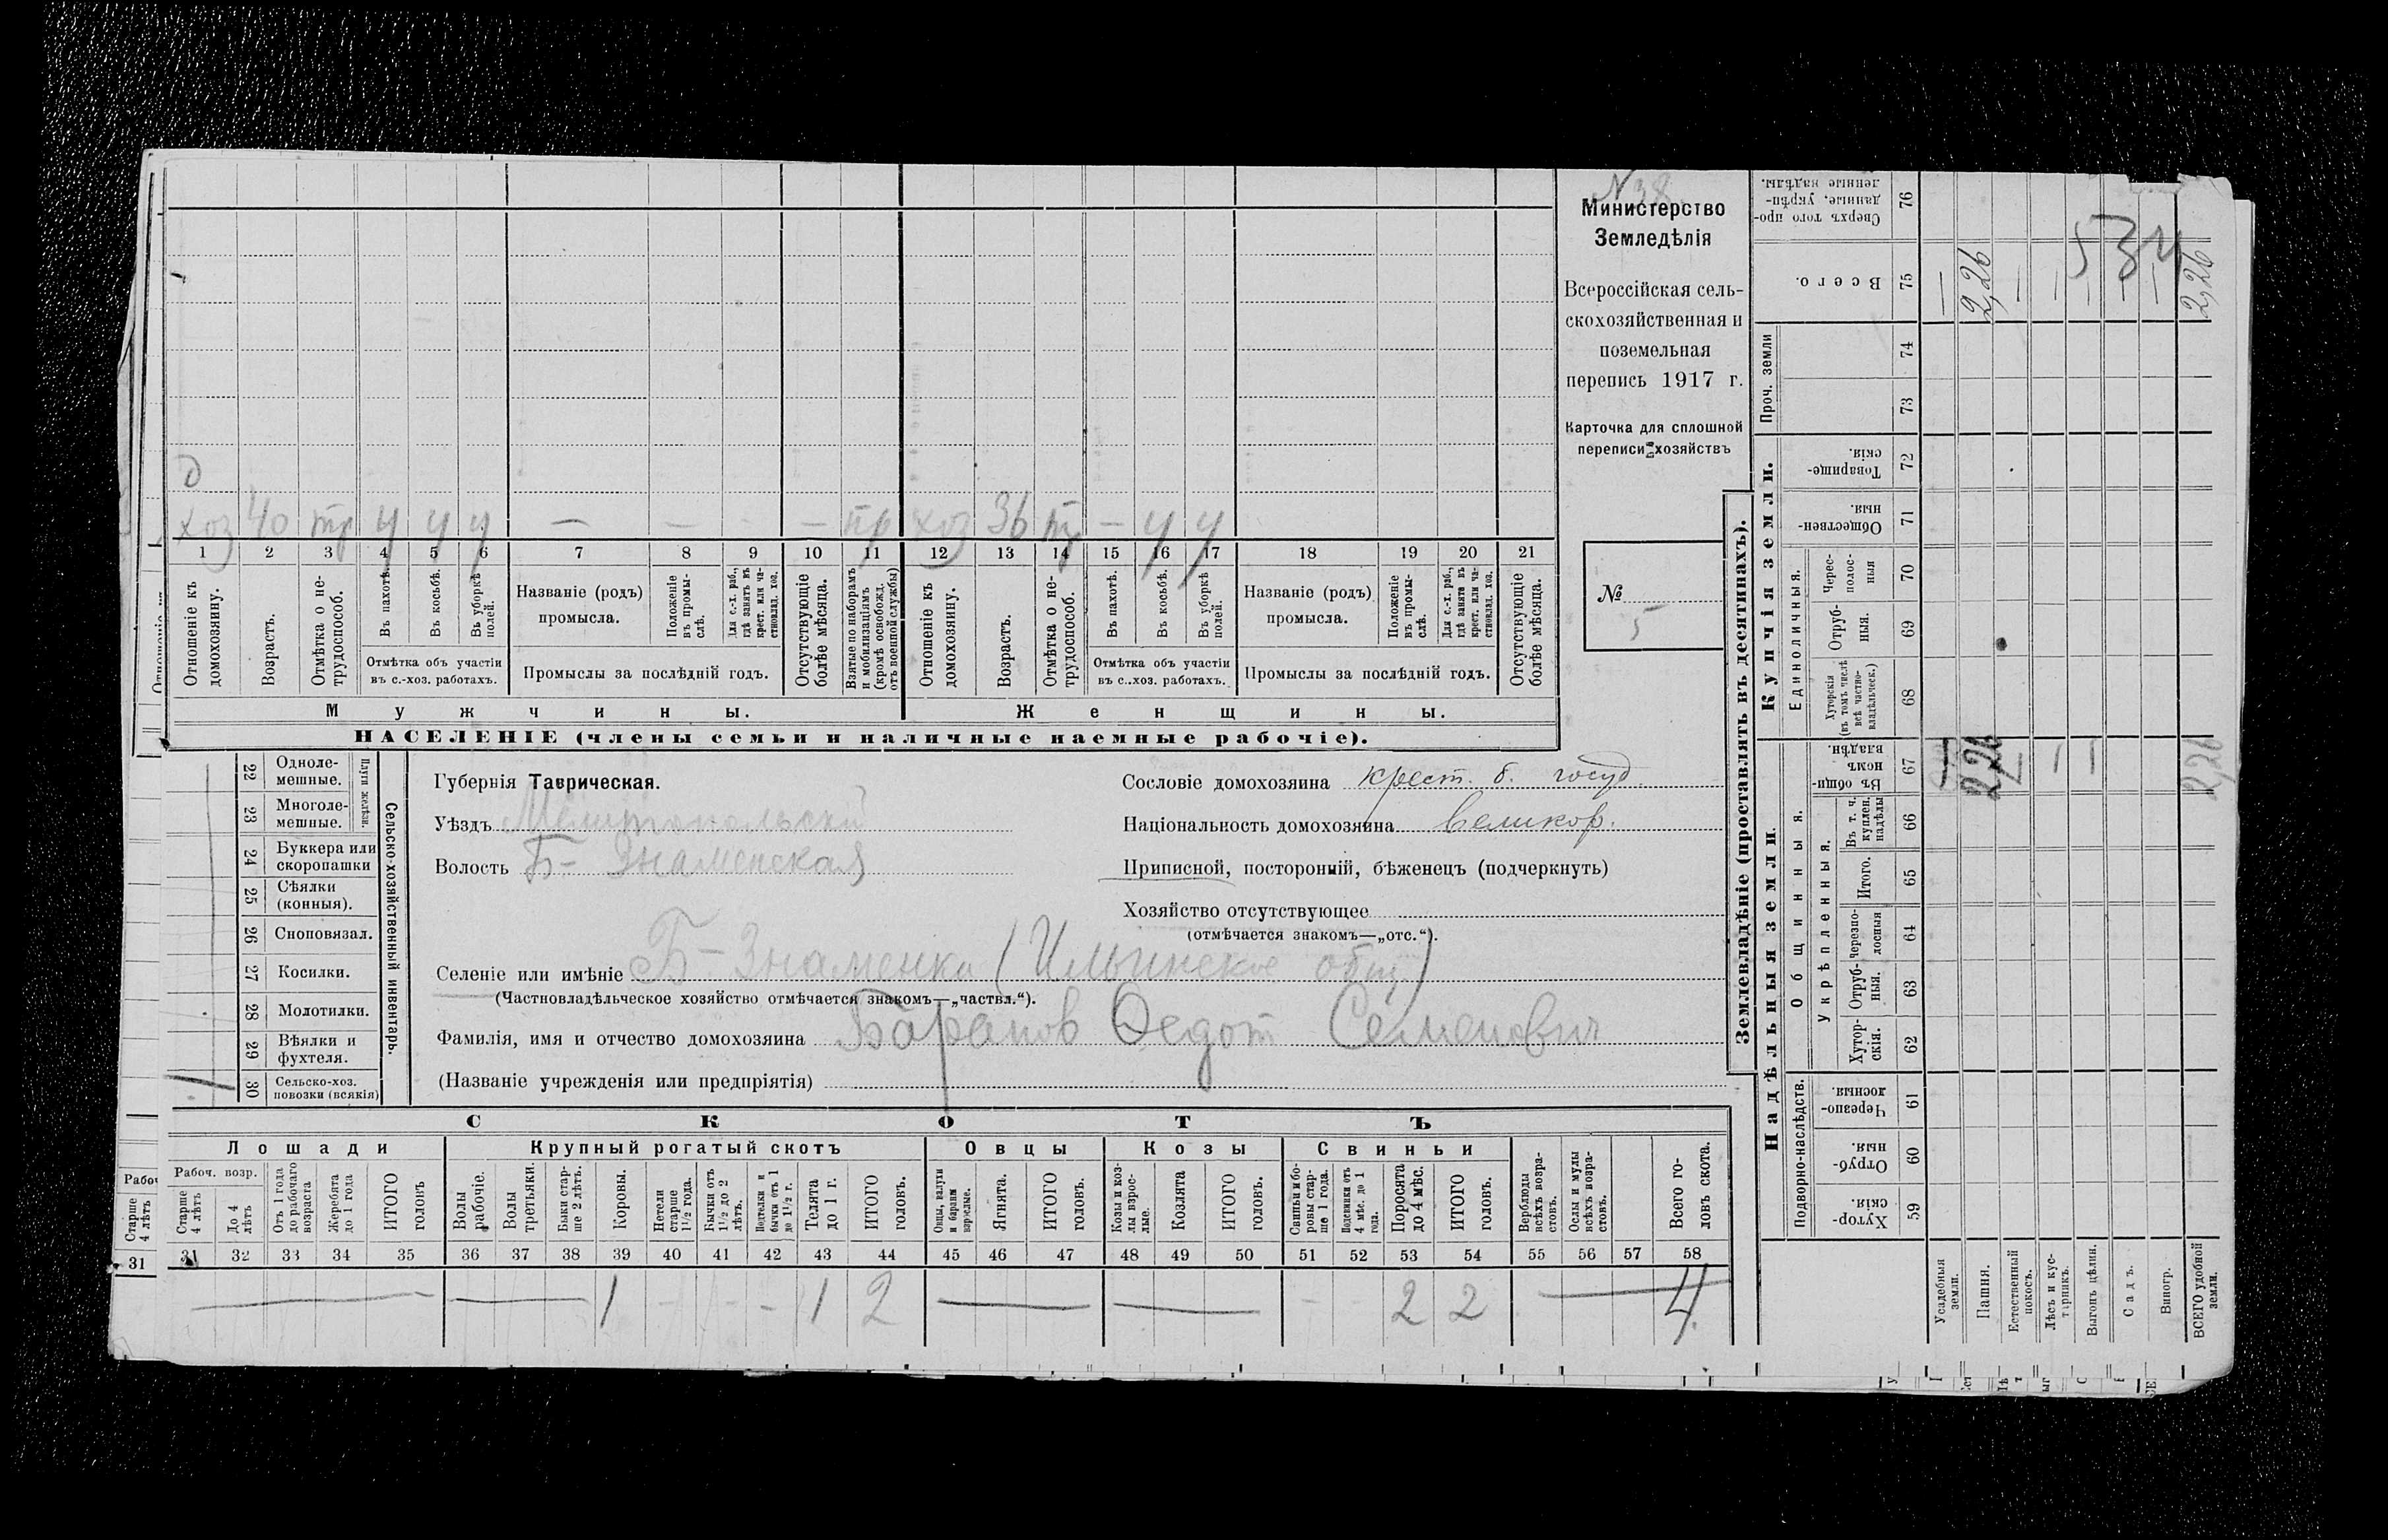 N 38.
Министерство
Земледѣлія
Всероссійская сель-
скохозяйственная и
поземельная
перепись 1917 г.
Карточка для сплошной
переписи хозяйствъ
№
5
хоз 40 тр у у у — — - — пр хоз 36 тр — у у
1 2 3 4 5 6 7 8 9 10 11 12 13 14 15 16 17 18 19 20 21
Отношеніе къ домохозяину.
Возрастъ.
Отмѣтка о не-трудоспособ.
Въ пахотѣ.
Въ косьбѣ.
Въ уборкѣ полей.
Отмѣтка объ участіи
въ с.-хоз. работахъ.
Названіе (родъ)
промысла.
Положеніе въ промы-слѣ.
Для с.-х. раб., гдѣ занятъ въ крест. или ча-стновлад. хоз.
Промыслы за послѣдній годъ.
Отсутствующіе болѣе мѣсяца.
Взятые по наборамъ и мобилизаціямъ (кромѣ освобожд. отъ военной службы)
Отношеніе къ домохозяину.
Возрастъ.
Отмѣтка о не-трудоспособ.
Въ пахотѣ.
Въ косьбѣ.
Въ уборкѣ полей.
Отмѣтка объ участіи
въ с.-хоз. работахъ.
Названіе (родъ)
промысла.
Положеніе въ промы-слѣ.
Для с.-х. раб., гдѣ занята въ крест. или ча-стновлад. хоз.
Промыслы за послѣдній годъ.
Отсутствующіе болѣе мѣсяца.
Мужчины.
Женщины.
НАСЕЛЕНІЕ (члены семьи и наличные наемные рабочіе).
22 Одноле-мешные.
23 Многоле-мешные.
Плуги желѣзн.
24 Буккера или скоропашки
25 Сѣялки (конныя).
26 Сноповязал.
27 Косилки.
28 Молотилки.
29 Вѣялки и фухтеля.
30 Сельско-хоз. повозки (всякія)
Сельско-хозяйственный инвентарь.
Губернія Таврическая.
Уѣздъ Мелитопольскій
Волость Б-Знаменская
Сословіе домохозяина крест. б. госуд.
Національность домохозяина великор.
Приписной, посторонній, бѣженецъ (подчеркнуть)
Хозяйство отсутствующее
(отмѣчается знакомъ—„отс.“).
Селеніе или имѣніе Б-Знаменка (Ильинское общ.)
(Частновладѣльческое хозяйство отмѣчается знакомъ—„частвл.“).
Фамилія, имя и отчество домохозяина Баранов Ѳедот Семенович
(Названіе учрежденія или предпріятія)
СКОТЪ
Лошади
Крупный рогатый скотъ
Овцы
Козы
Свиньи
Рабоч. возр.
Старше 4 лѣтъ
До 4 лѣтъ
Отъ 1 года до рабочаго возраста
Жеребята до 1 года
ИТОГО головъ
Волы рабочіе.
Волы третьяки.
Быки стар-ше 2 лѣтъ.
Коровы.
Нетели старше 1½ года.
Бычки отъ 1½ до 2 лѣтъ.
Подтелки и бычки отъ 1 до 1½ г.
Телята до 1 г.
ИТОГО головъ.
Овцы, валухи и бараны взрослые.
Ягнята.
ИТОГО головъ.
Козы и коз-лы взрос-лые.
Козлята
ИТОГО головъ.
Свиньи и бо-ровы стар-ше 1 года.
Подсвинки отъ 4 мѣс. до 1 года.
Поросята до 4 мѣс.
ИТОГО головъ.
Верблюды всѣхъ возра-стовъ.
Ослы и мулы всѣхъ возра-стовъ.
Всего го-ловъ скота.
31 32 33 34 35 36 37 38 39 40 41 42 43 44 45 46 47 48 49 50 51 52 53 54 55 56 57 58
1 1 2 2 2 4.
Старше 4 лѣтъ
31
Землевладѣніе (проставлять въ десятинахъ).
Надѣльныя земли.
Купчія земли.
Проч. земли
Подворно-наслѣдств.
Общинныя.
Укрѣпленныя.
Единоличныя.
Хутор-скія. 59
Отруб-ныя. 60
Черезпо-лосныя. 61
Хутор-скія. 62
Отруб-ныя. 63
Черезпо-лосныя 64
Итого. 65
Въ т. ч. куплен. надѣлы 66
Въ общи-номъ владѣн. 67
Хуторскія (въ томъ числѣ всѣ частно-владѣльческ.) 68
Отруб-ныя. 69
Черес-полос-ныя 70
Обществен-ныя. 71
Товарище-скія. 72
73
74
Всего. 75
Сверхъ того про-данные, укрѣп-ленные надѣлы. 76
Усадебныя земли.
Пашня. 2,26 2,26
Естественный покосъ.
Лѣсъ и кус-тарникъ.
Выгонъ цѣлин.
Садъ.
Виногр.
ВСЕГО удобной земли. 2,26 2,26